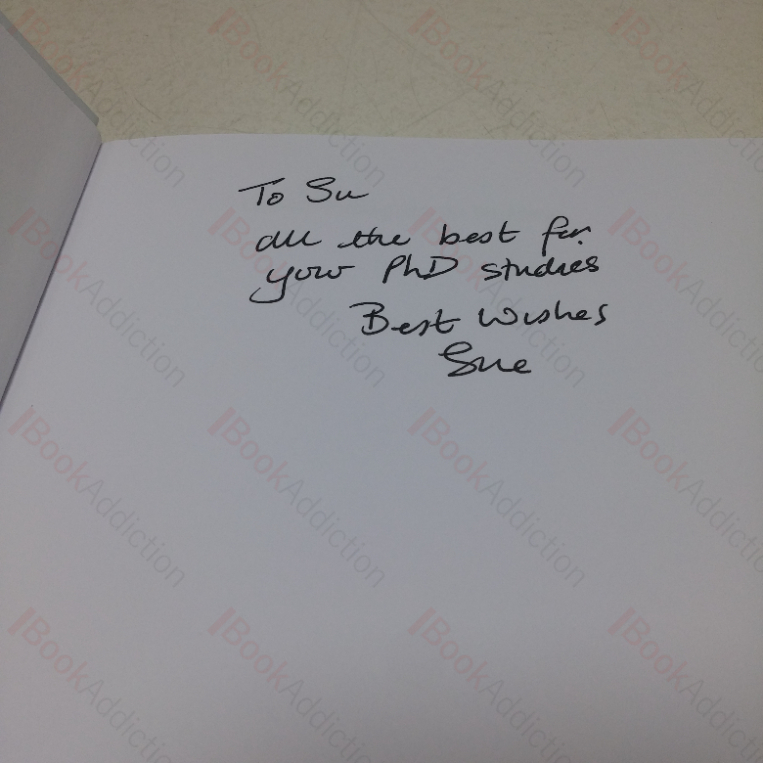 To Su
all the best for
your PhD studies
Best Wishes
Sue
BookAddiction